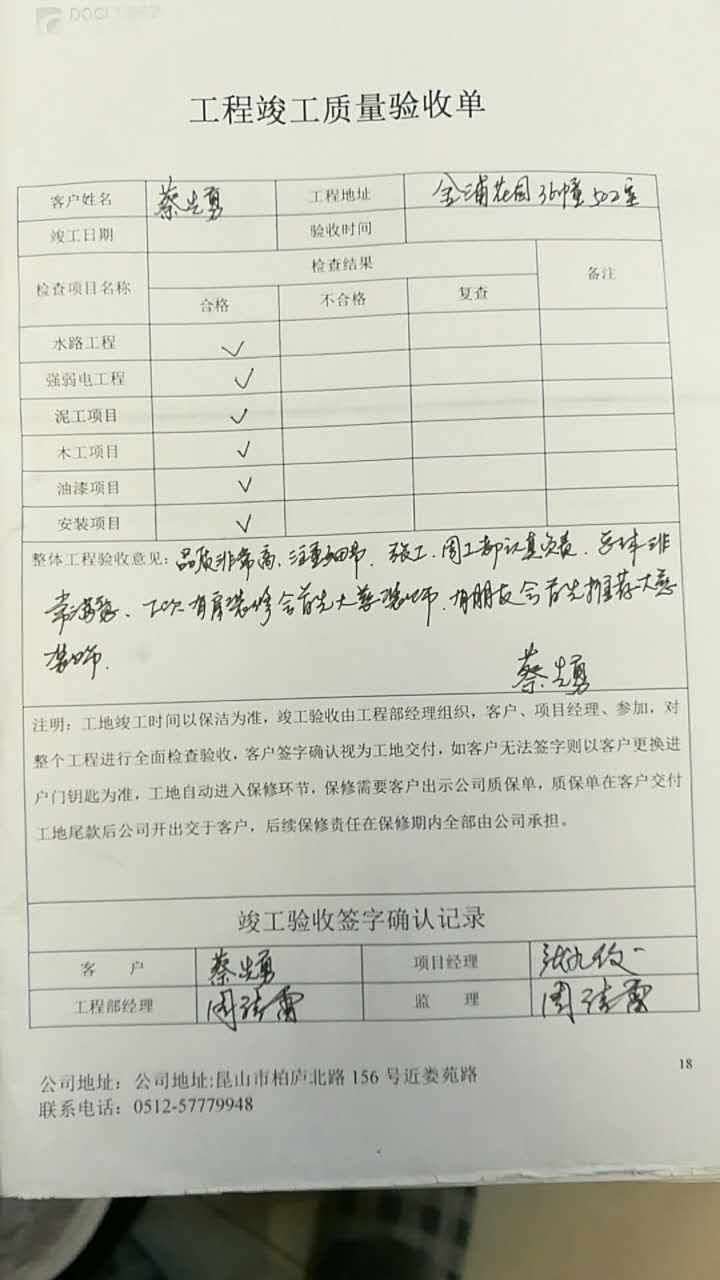 DOCI
工程竣工质量验收单
客户姓名 蔡先勇 工程地址 金浦花园36幢502室
竣工日期 验收时间
检查项目名称 检查结果 备注
合格 不合格 复查
水路工程 ✓
强弱电工程 ✓
泥工项目 ✓
木工项目 ✓
油漆项目 ✓
安装项目 ✓
整体工程验收意见：品质非常高、注重细节、张工、周工都认真负责、总体非
常满意、下次有房装修会首先大慈装饰、有朋友会首先推荐大慈
装饰.
蔡先勇
注明：工地竣工时间以保洁为准，竣工验收由工程部经理组织，客户、项目经理、参加，对
整个工程进行全面检查验收，客户签字确认视为工地交付，如客户无法签字则以客户更换进
户门钥匙为准，工地自动进入保修环节，保修需要客户出示公司质保单，质保单在客户交付
工地尾款后公司开出交于客户，后续保修责任在保修期内全部由公司承担。
竣工验收签字确认记录
客 户 蔡先勇 项目经理
工程部经理 监 理
18
公司地址：公司地址:昆山市柏庐北路 156 号近娄苑路
联系电话：0512-57779948